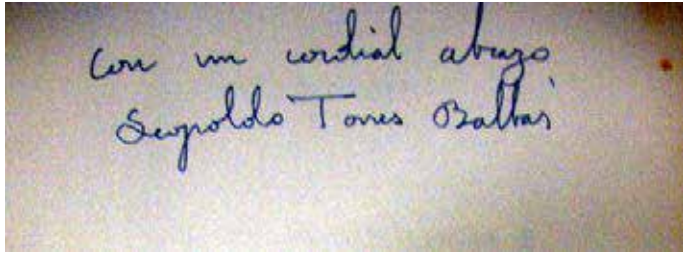 Con un cordial abrazo
Leopoldo Torres Balbás